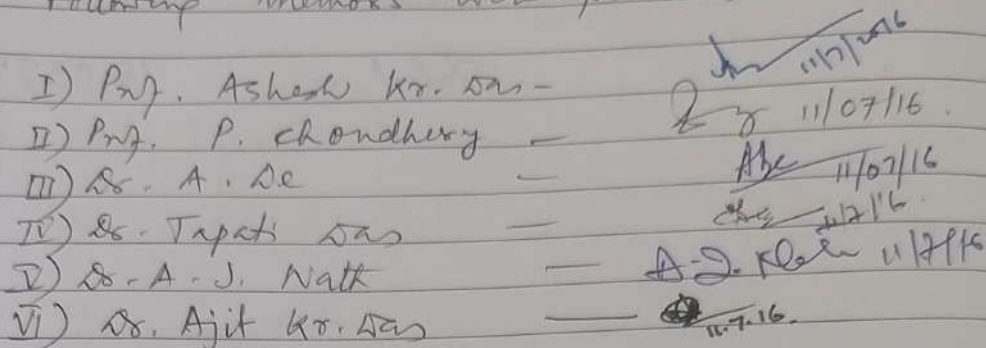 Following members were
I) Prof. Ashesh Kr. Das - 11/7/2016
II) Prof. P. Choudhury - 11/07/16.
III) Dr. A. De - 11/07/16
IV) Dr. Tapati Das - 11/7/16.
V) Dr. A. J. Nath - 11/7/16
VI) Dr. Ajit Kr. Das - 11.7.16.